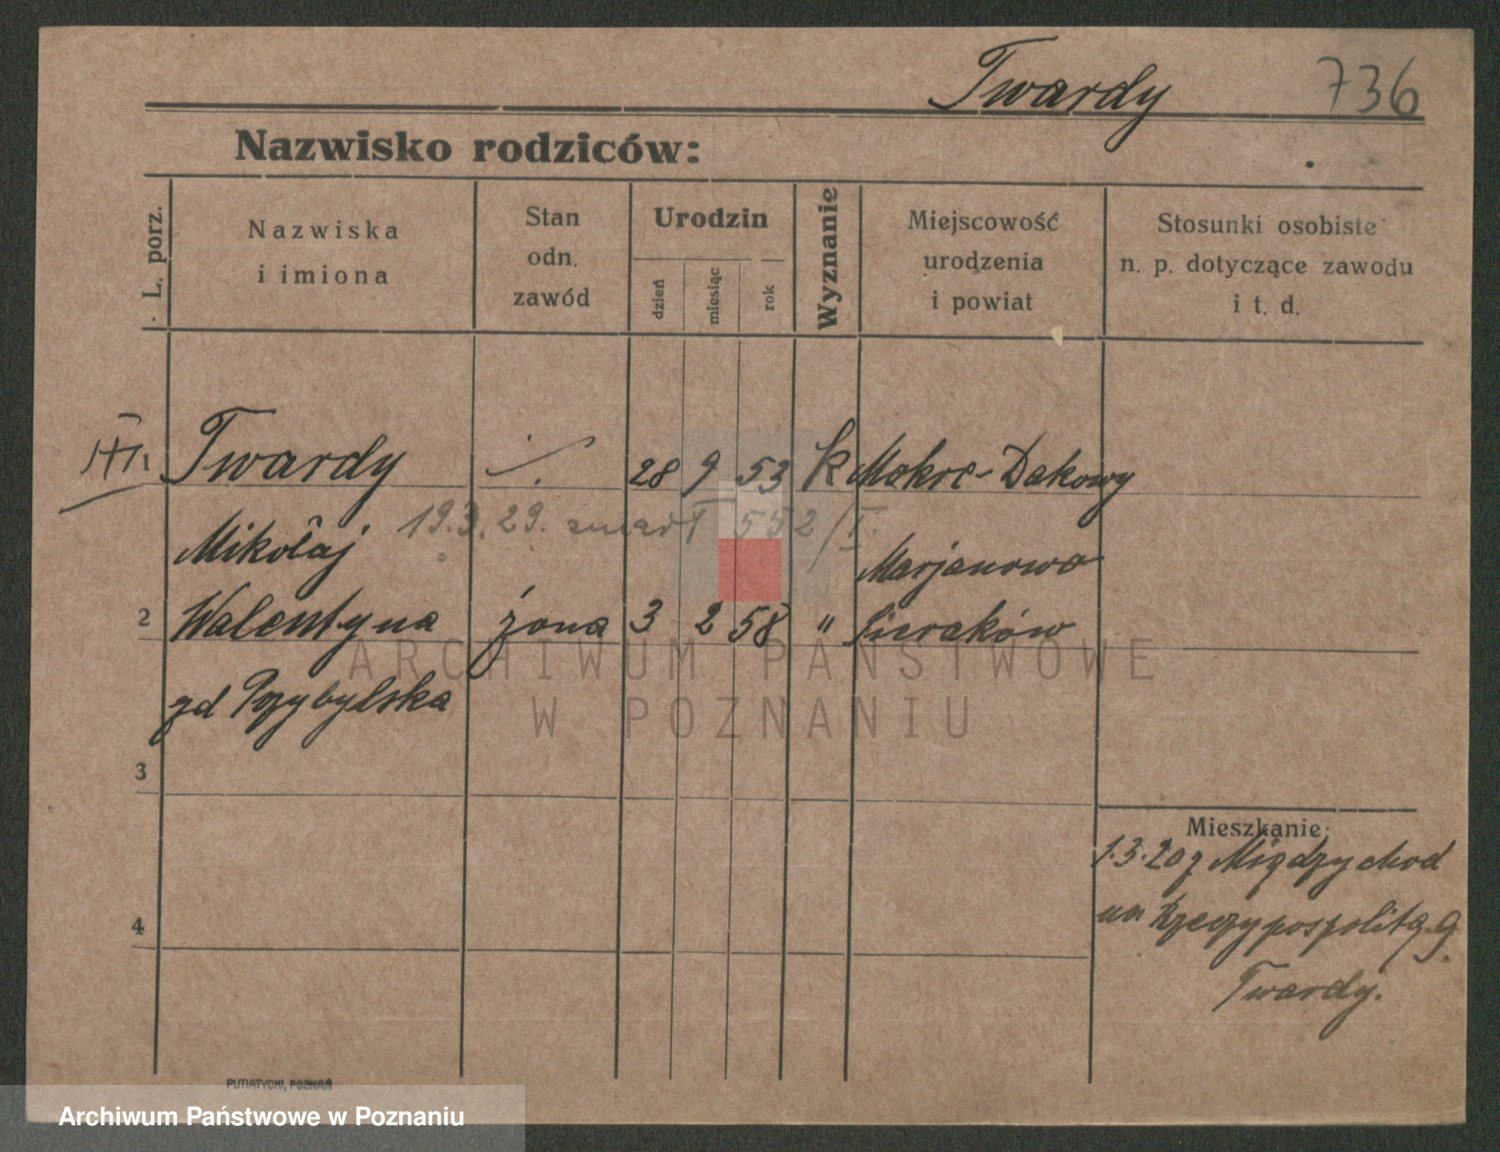 Twardy 736
Nazwisko rodziców:
L. porz.
Nazwiska
i imiona
Stan
odn.
zawód
Urodzin
dzień
miesiąc
rok
Wyznanie
Miejscowość
urodzenia
i powiat
Stosunki osobiste
n. p. dotyczące zawodu
i t. d.
Twardy ./. 28 9 53 k Mokre-Dakowy
19.3.29. zmarł 552/I.
Mikołaj Marjanowo
2 Walentyna żona 3 2 58 " Sieraków
zd Przybylska
3
Mieszkanie:
1.3.20 z Międzychod
4
na Rzeczypospolitą 9.
Twardy.
PUTIATYCKI, POZNAŃ
ARCHIWUM PAŃSTWOWE
W POZNANIU
Archiwum Państwowe w Poznaniu